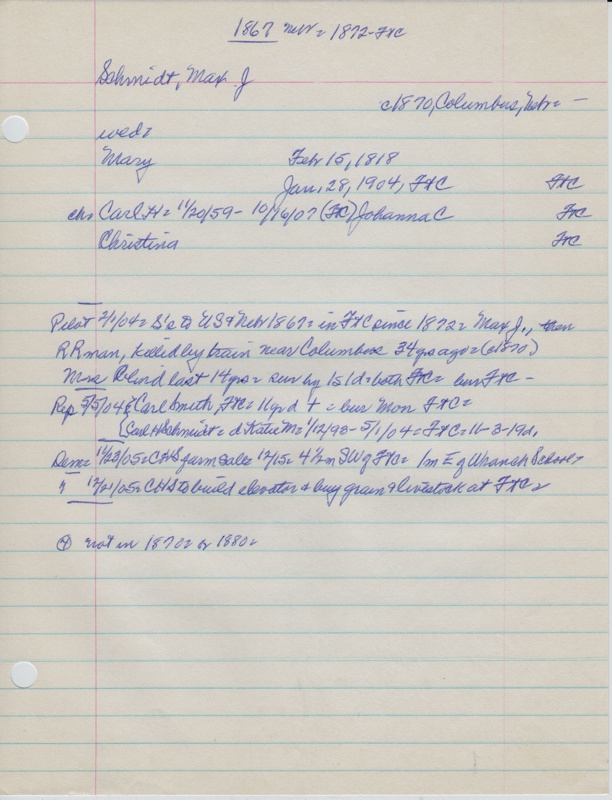 1867 Nebr = 1872 - FtC
Schmidt, Max J
c1870, Columbus, Nebr = -
wed=
Mary Feb 15, 1818
Jan. 28, 1904, FtC FtC
chn Carl H = 11/20/59 - 10/16/07 (FtC) Johanna C FtC
Christina FtC
Pilot 2/1/04 = S's to US & Nebr 1867 = in FtC since 1872 = Max J., then
RR man, killed by train near Columbus 34 yrs ago = (c1870)
Mrs Blind last 14 yrs = sur by 1s 1d = both FtC = bur FtC -
Rep 5/5/04 { Carl Smith, FtC = 11 yr d + = bur Mon FtC =
{ Carl H Schmidt = d Katie M = 1/12/93 - 5/1/04 = FtC = 11-3-19d.
Dem = 11/23/05 = CHS farm sale 12/15 = 4 1/2 m SW of FtC = 1m E of Wranch School =
" 12/21/05 = CHS to build elevator & buy grain & livestock at FtC =
not in 1870 = or 1880 =